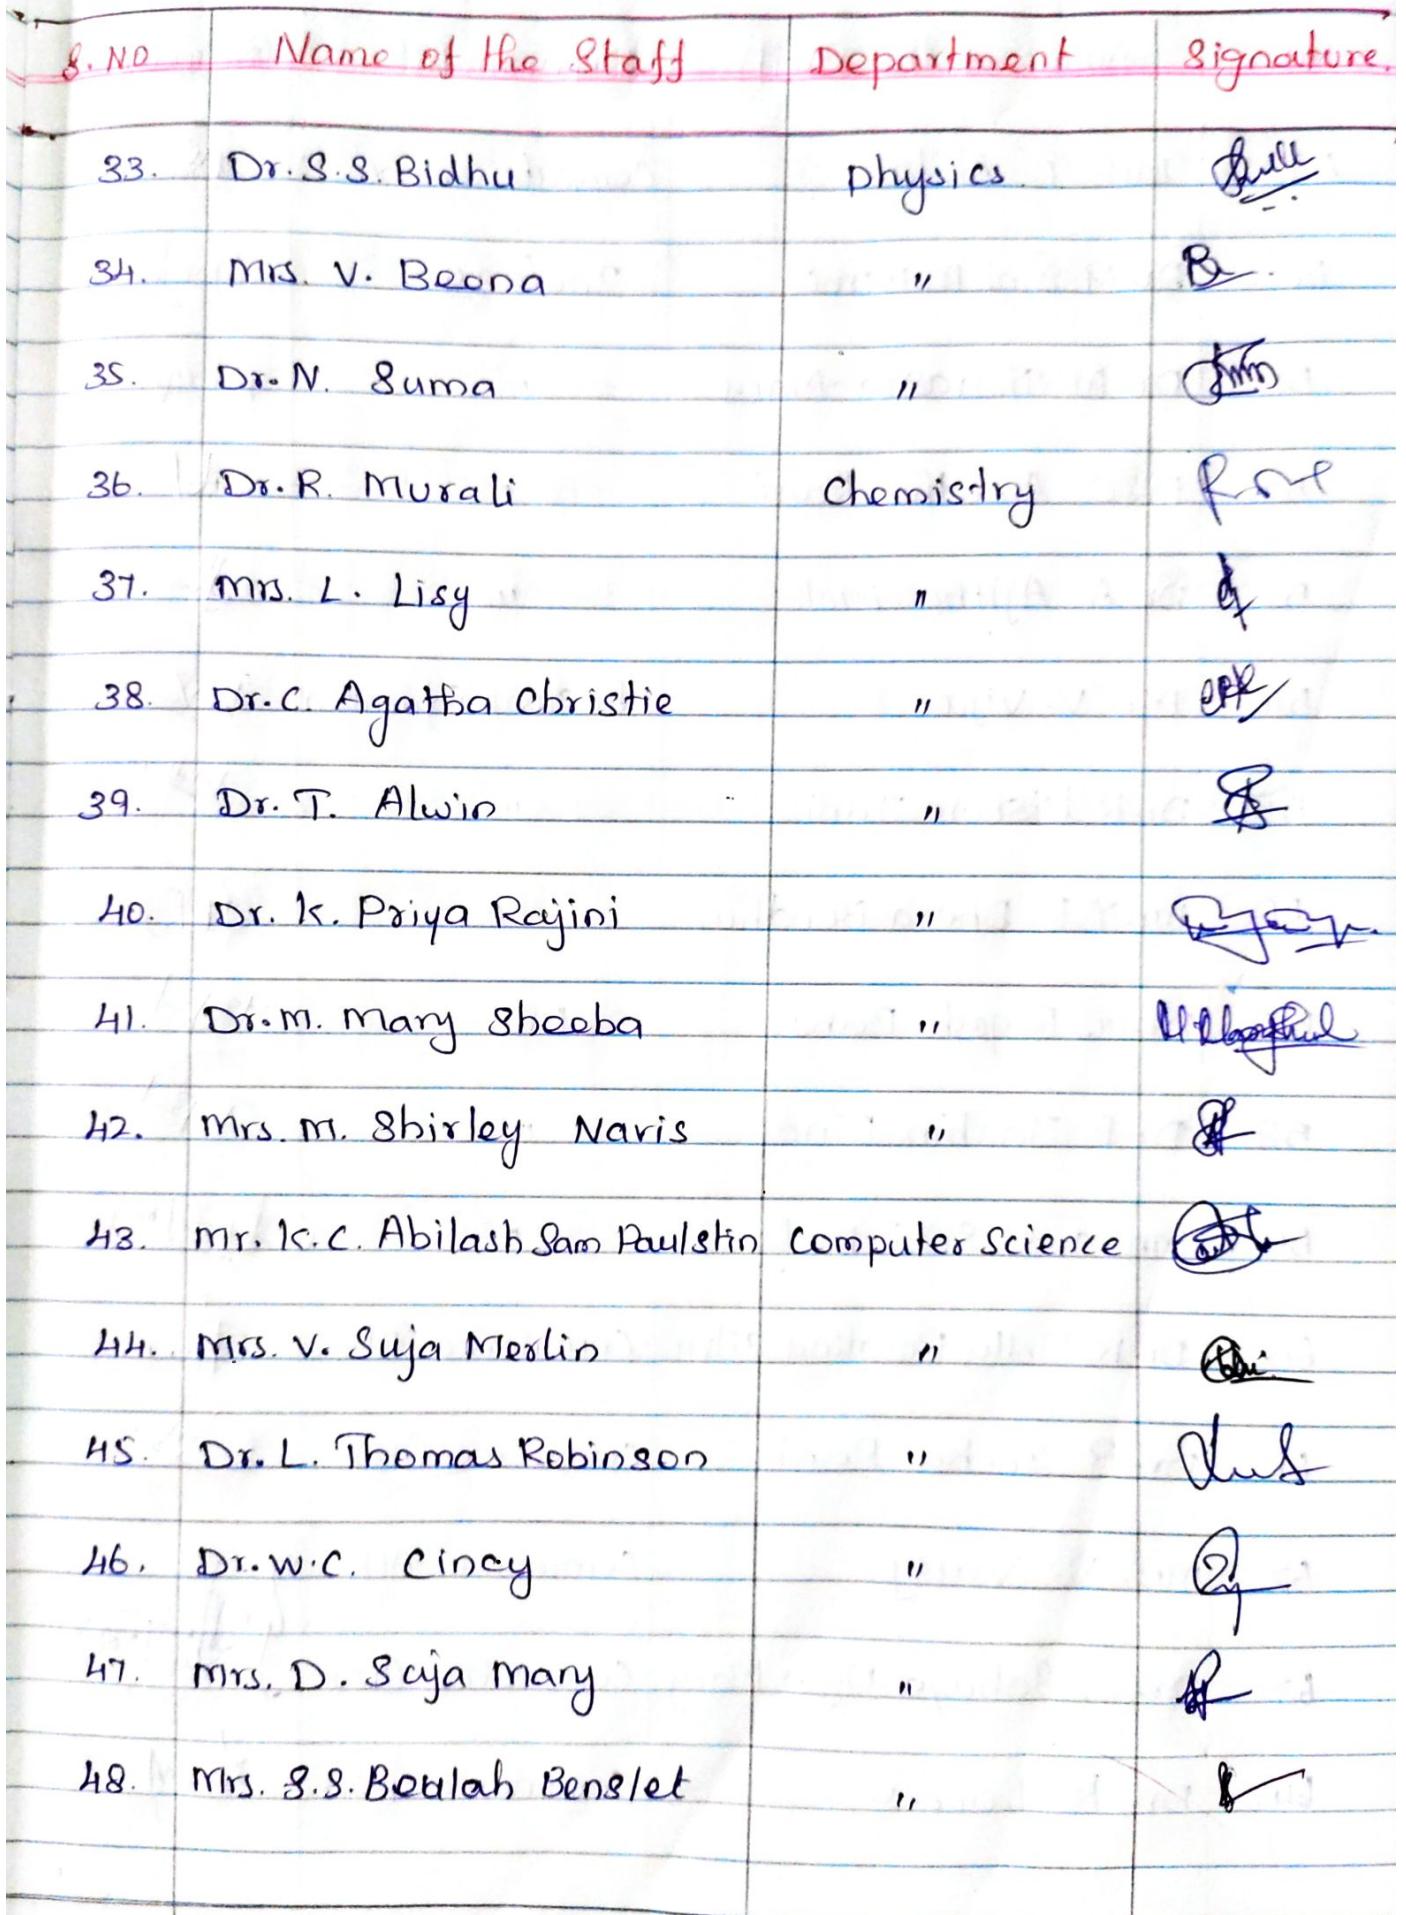 S. NO Name of the Staff Department Signature.
33. Dr. S. S. Bidhu Physics
34. Mrs. V. Beena "
35. Dr. N. Suma "
36. Dr. R. Murali Chemistry
37. Mrs. L. Lisy "
38. Dr. C. Agatha Christie "
39. Dr. T. Alwin "
40. Dr. K. Priya Rajini "
41. Dr. M. Mary Sheeba "
42. Mrs. M. Shirley Navis "
43. Mr. K. C. Abilash Sam Paulstin Computer Science
44. Mrs. V. Suja Merlin "
45. Dr. L. Thomas Robinson "
46. Dr. W. C. Cincy "
47. Mrs. D. Suja Mary "
48. Mrs. S. S. Beulah Benslet "